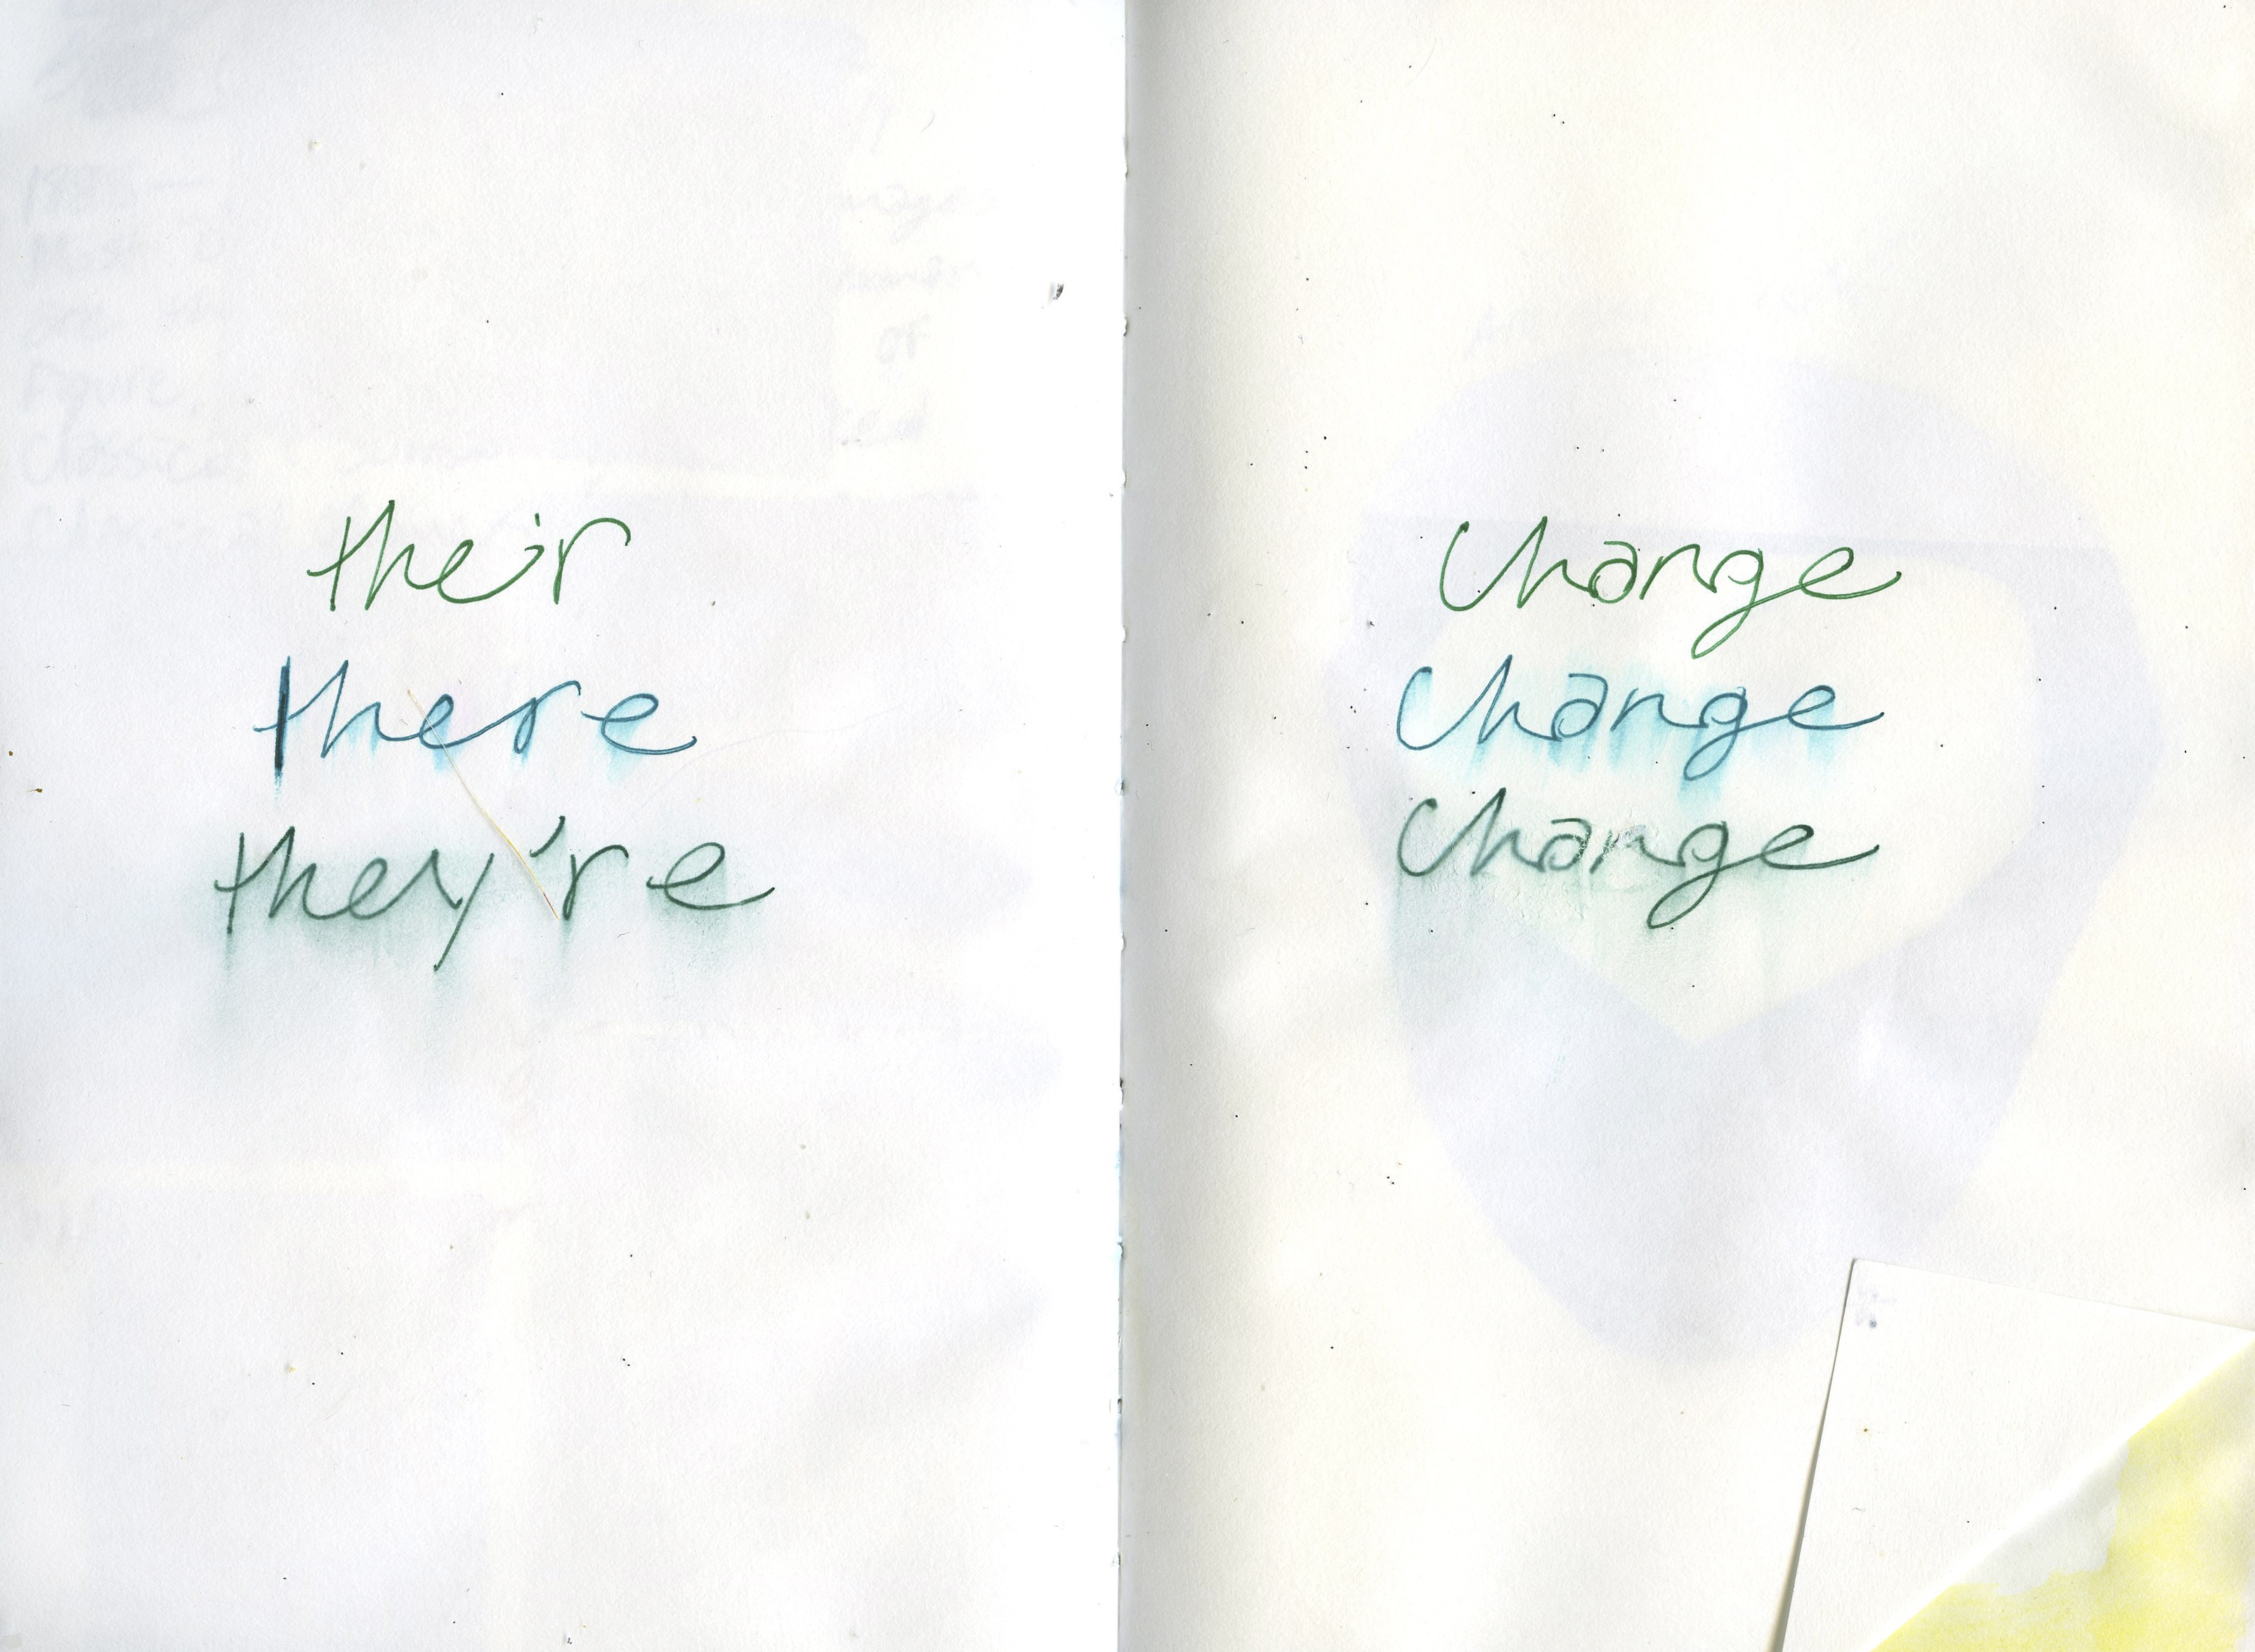 their
there
they're
Change
Change
Change